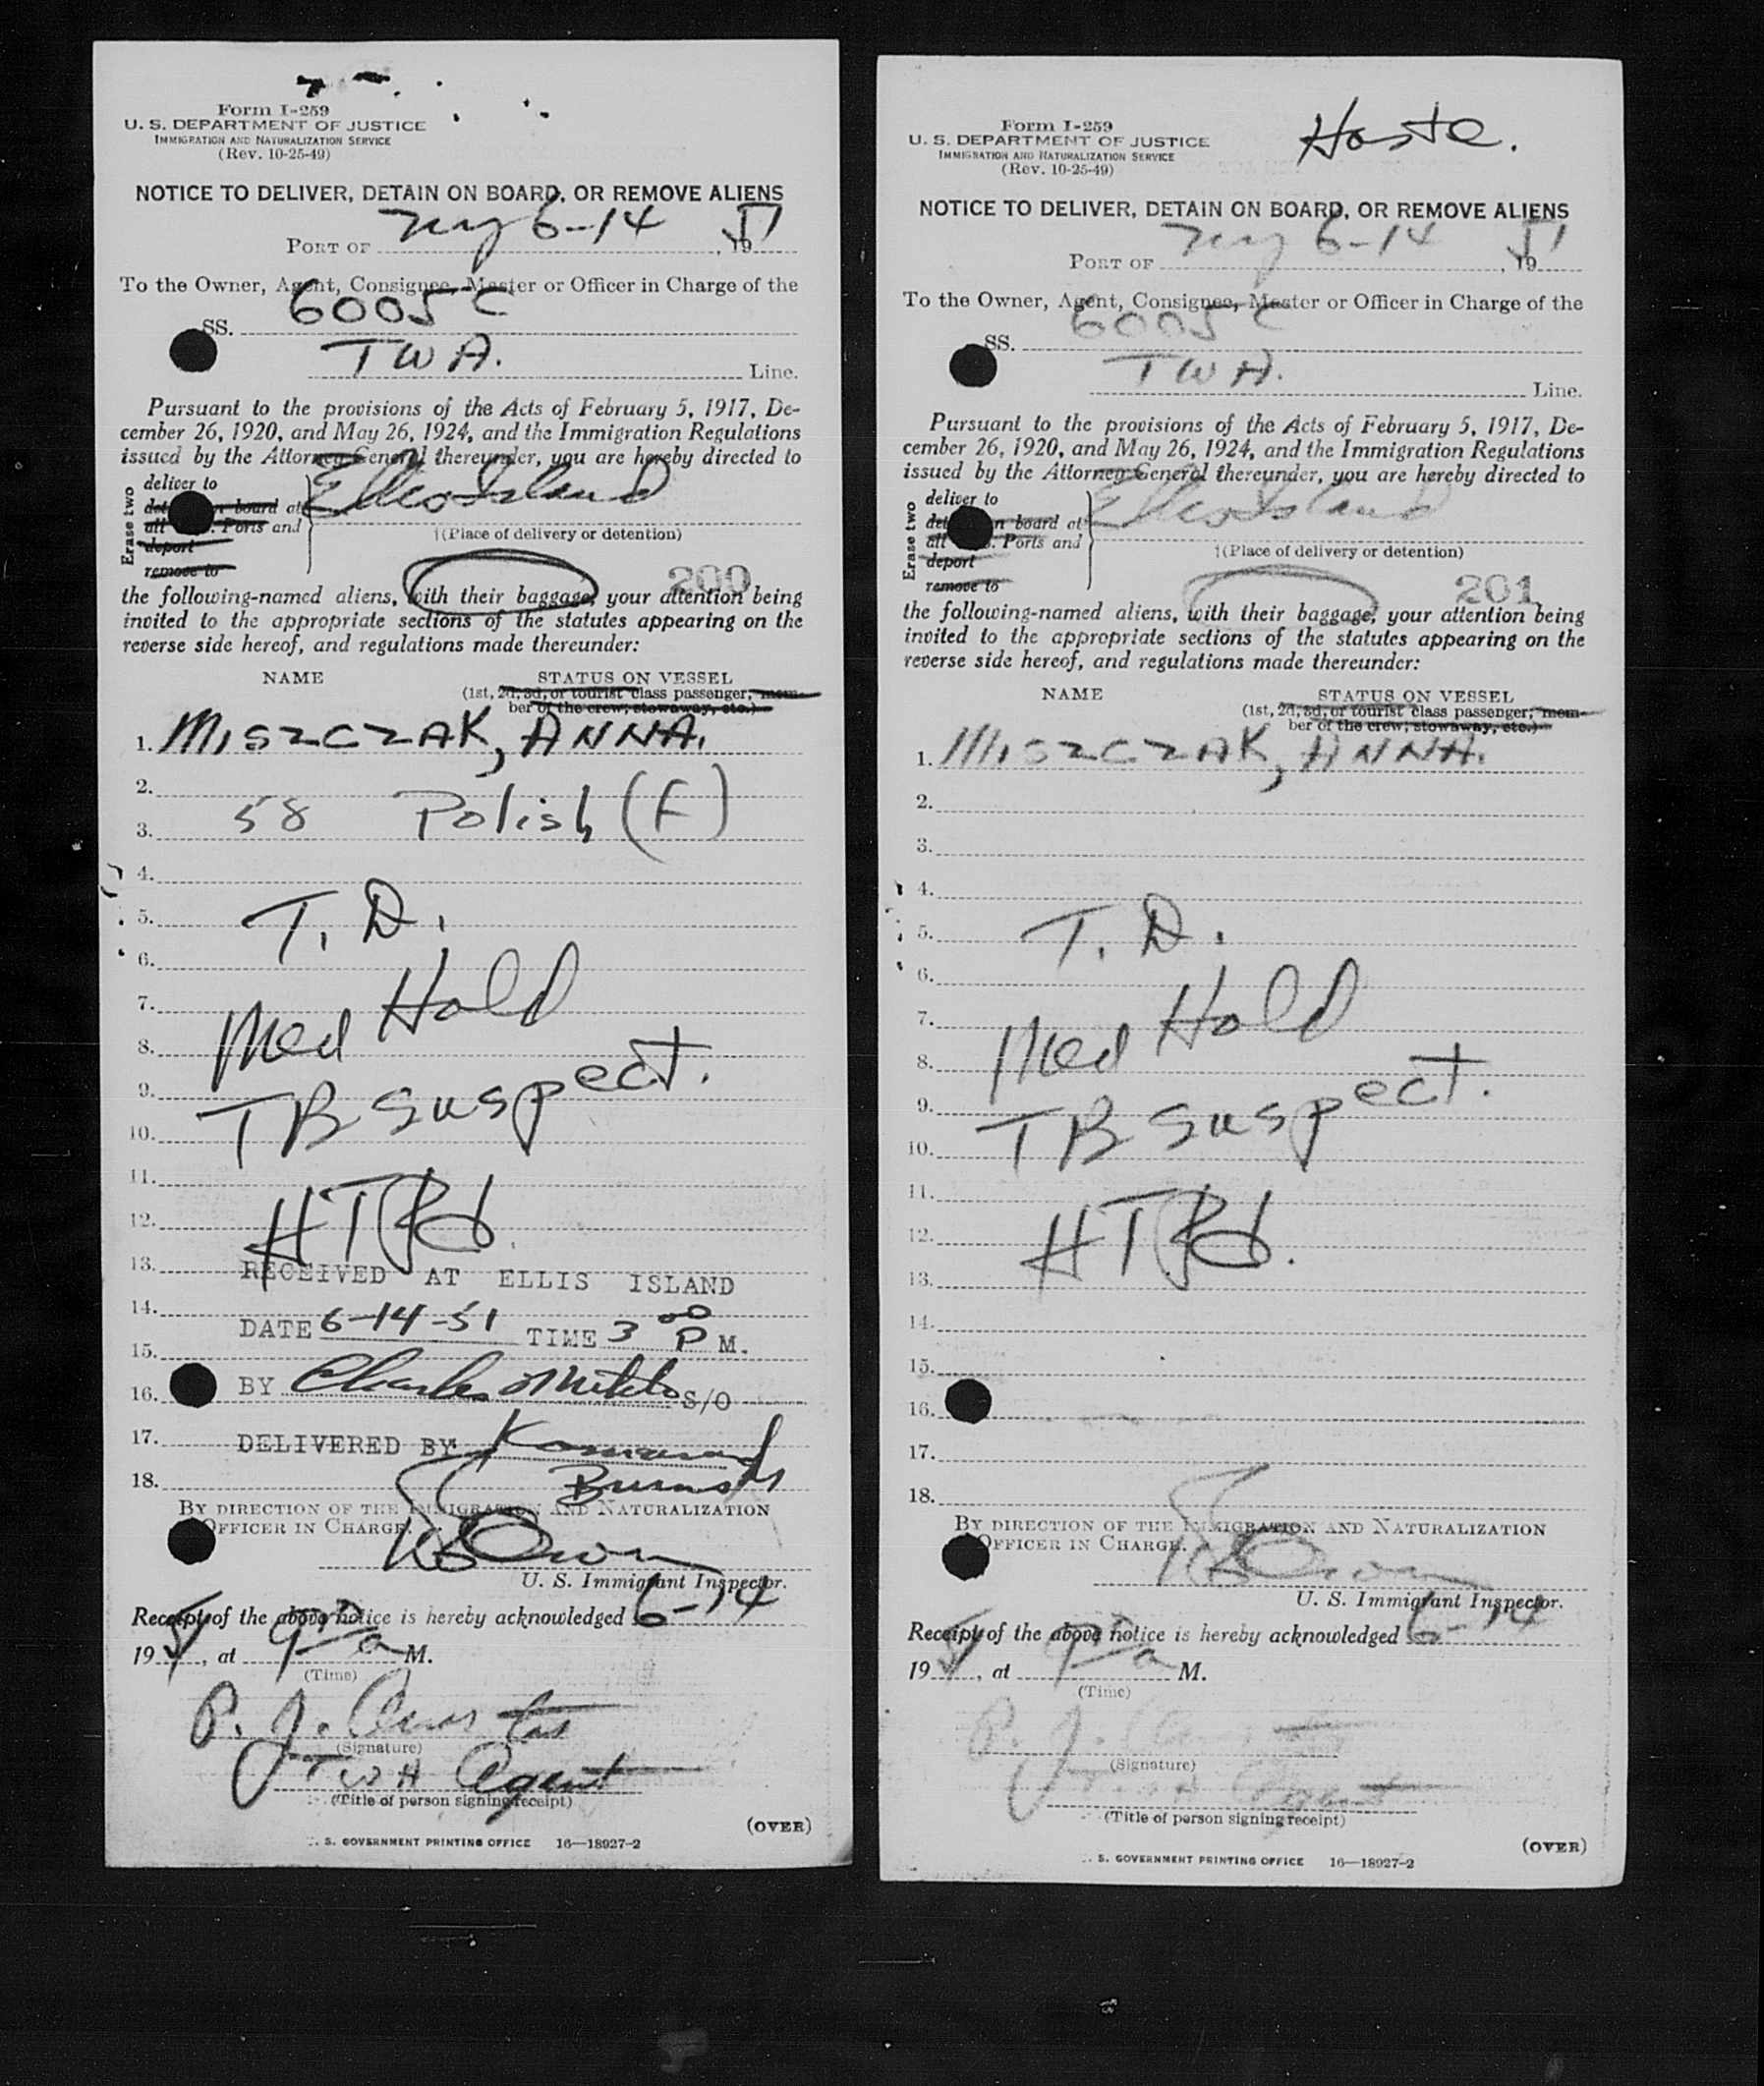 Form I-259
U. S. DEPARTMENT OF JUSTICE
IMMIGRATION AND NATURALIZATION SERVICE
(Rev. 10-25-49)
NOTICE TO DELIVER, DETAIN ON BOARD, OR REMOVE ALIENS
PORT OF NY 6-14, 1951
To the Owner, Agent, Consignee, Master or Officer in Charge of the
SS. 6005 C
TWA. Line.
Pursuant to the provisions of the Acts of February 5, 1917, De-
cember 26, 1920, and May 26, 1924, and the Immigration Regulations
issued by the Attorney General thereunder, you are hereby directed to
Erase two
deliver to
board at
all Ports and
deport
remove to
Ellis Island
†(Place of delivery or detention)
200
the following-named aliens, with their baggage, your attention being
invited to the appropriate sections of the statutes appearing on the
reverse side hereof, and regulations made thereunder:
NAME STATUS ON VESSEL
(1st, 2d, 3d, or tourist class passenger, mem-
ber of the crew, stowaway, etc.)
1. MISZCZAK, ANNA.
2.
3. 58 Polish (F)
4.
5. T. D.
6.
7. Hold
8. Med
9. TB suspect.
10.
11.
12.
13. RECEIVED AT ELLIS ISLAND
14. DATE 6-14-51 TIME 3 00 P M.
15.
16. BY Charles S/O
17. DELIVERED BY
18. Burns
BY DIRECTION OF THE IMMIGRATION AND NATURALIZATION
OFFICER IN CHARGE.
U. S. Immigrant Inspector.
Receipt of the above notice is hereby acknowledged 6-14
1951, at 9 a M.
(Time)
P. J.
(Signature)
TWA Agent
(Title of person signing receipt)
(OVER)
S. GOVERNMENT PRINTING OFFICE 16—18927-2
Form I-259
U. S. DEPARTMENT OF JUSTICE
IMMIGRATION AND NATURALIZATION SERVICE
(Rev. 10-25-49)
NOTICE TO DELIVER, DETAIN ON BOARD, OR REMOVE ALIENS
PORT OF NY 6-14, 1951
To the Owner, Agent, Consignee, Master or Officer in Charge of the
SS. 6005 C
TWA. Line.
Pursuant to the provisions of the Acts of February 5, 1917, De-
cember 26, 1920, and May 26, 1924, and the Immigration Regulations
issued by the Attorney General thereunder, you are hereby directed to
Erase two
deliver to
on board at
all Ports and
deport
remove to
Ellis Island
†(Place of delivery or detention)
201
the following-named aliens, with their baggage, your attention being
invited to the appropriate sections of the statutes appearing on the
reverse side hereof, and regulations made thereunder:
NAME STATUS ON VESSEL
(1st, 2d, 3d, or tourist class passenger, mem-
ber of the crew, stowaway, etc.)
1. MISZCZAK, ANNA.
2.
3.
4.
5. T. D.
6.
7. Hold
8. Med
9. TB suspect.
10.
11.
12.
13.
14.
15.
16.
17.
18.
BY DIRECTION OF THE IMMIGRATION AND NATURALIZATION
OFFICER IN CHARGE.
U. S. Immigrant Inspector.
Receipt of the above notice is hereby acknowledged 6-14
1951, at 9 a M.
(Time)
P. J.
(Signature)
TWA Agent
(Title of person signing receipt)
(OVER)
S. GOVERNMENT PRINTING OFFICE 16—18927-2